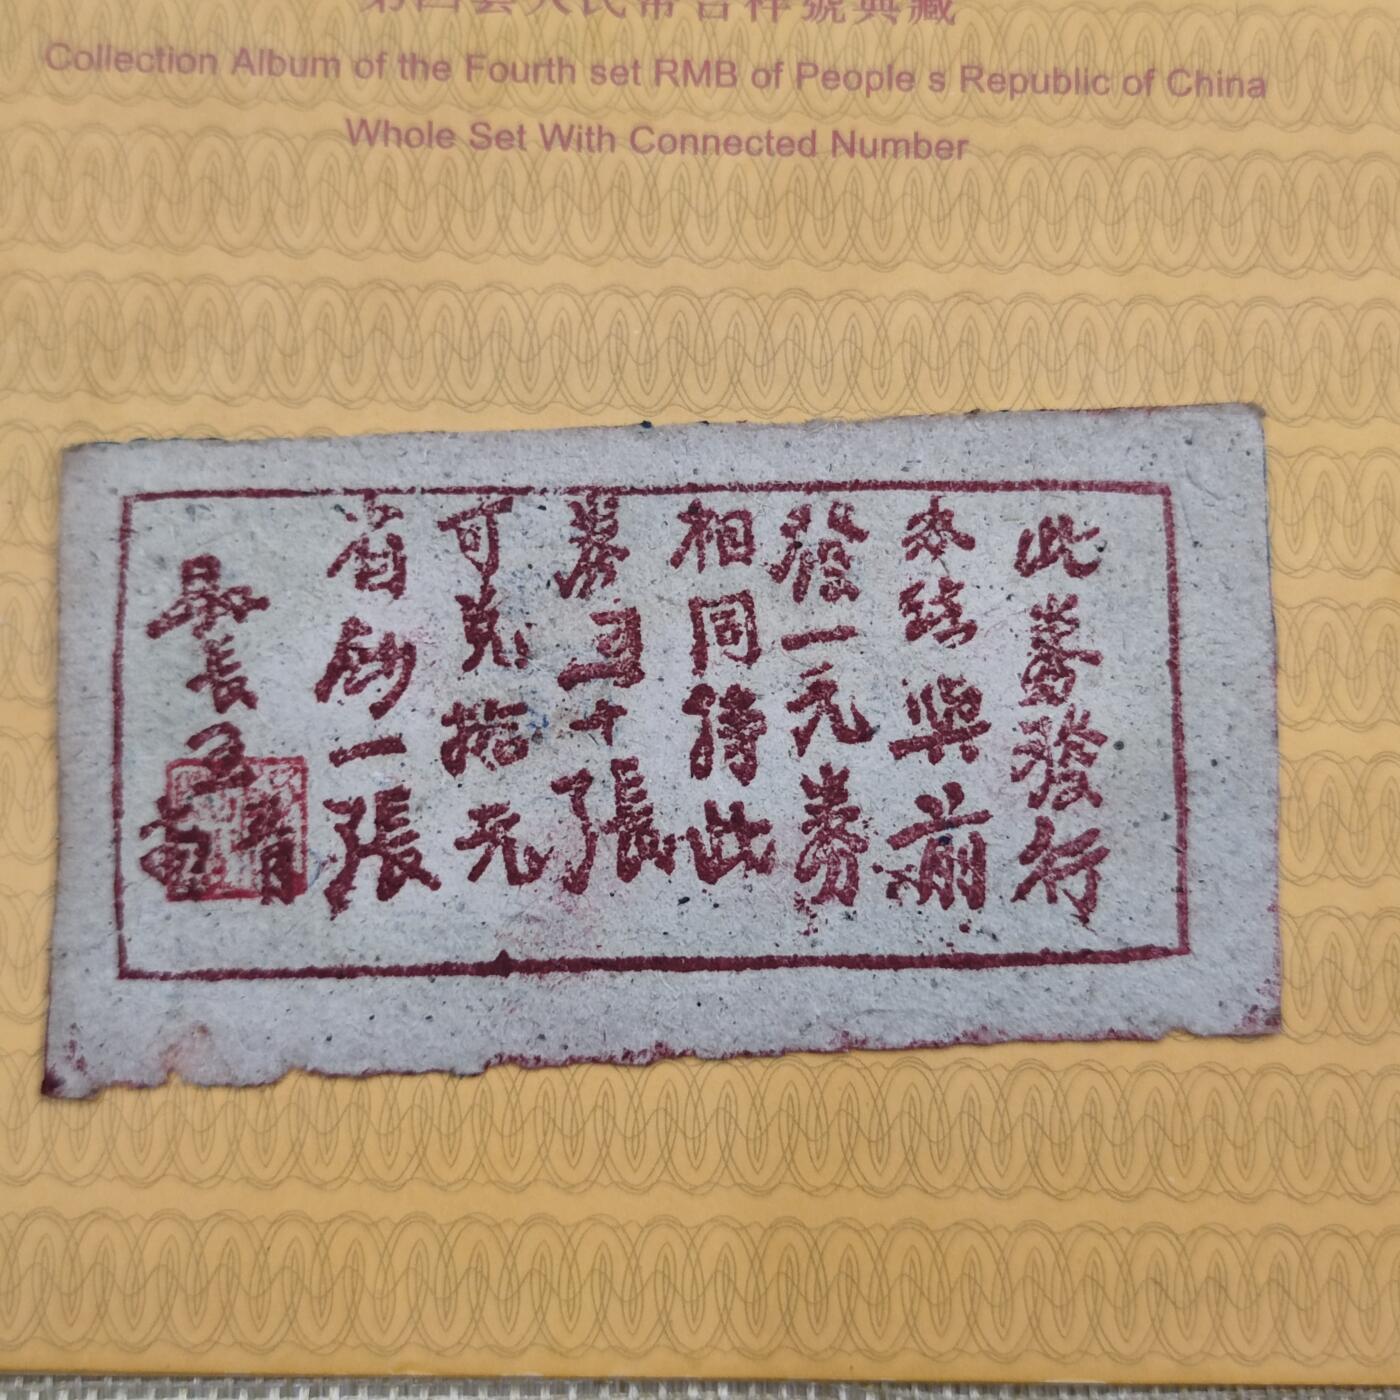 第四套人民幣吉祥號典藏
Collection Album of the Fourth set RMB of People s Republic of China
Whole Set With Connected Number
此券發行
本縣與前
發一元券
相同持此
券五十張
可兑拾元
省鈔一張
縣長